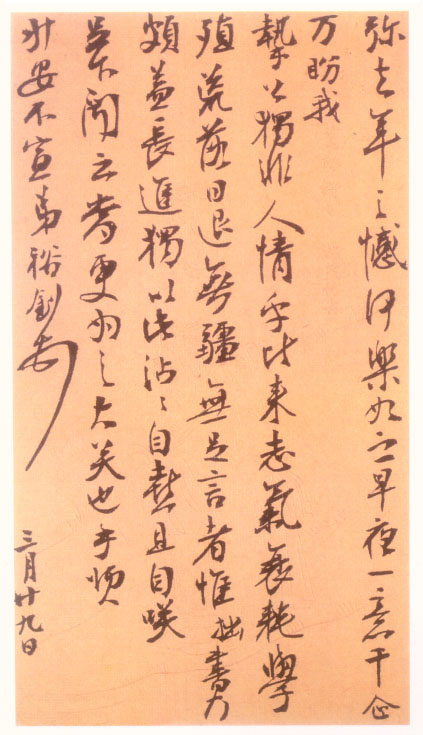 弥去年之憾何樂如之早夜一意千企
万盼我
摯公獨非人情乎比来志氣衰耗學
殖荒落日退無疆無足言者惟拙書乃
頗益長進獨以此沾沾自熹且自咲
下聞之當更為之大笑也手頌
升安不宣弟裕釗
三月廿九日